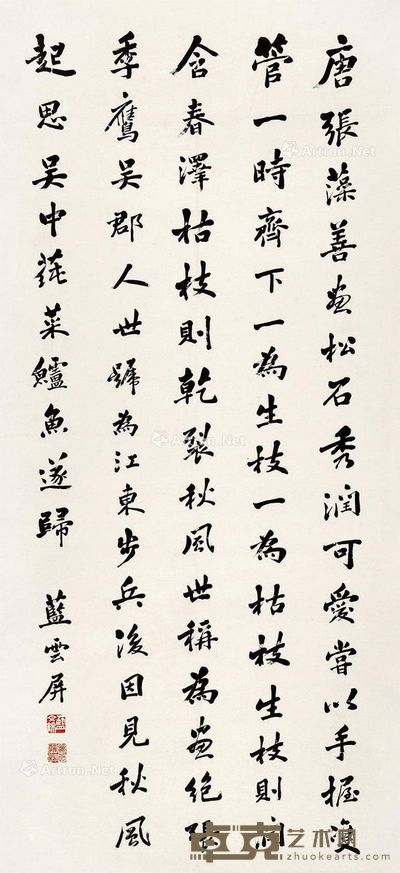 唐張藻善畫松石秀潤可愛嘗以手握雙
管一時齊下一為生枝一為枯枝生枝則潤
含春澤枯枝則乾裂秋風世稱為畫絕張
季鷹吳郡人世號為江東步兵後因見秋風
起思吳中蒓菜鱸魚遂歸
藍雲屏
Artron.Net
Artron.Net
Artron.Net
Artron.Net
卓克艺术网
zhuokearts.com